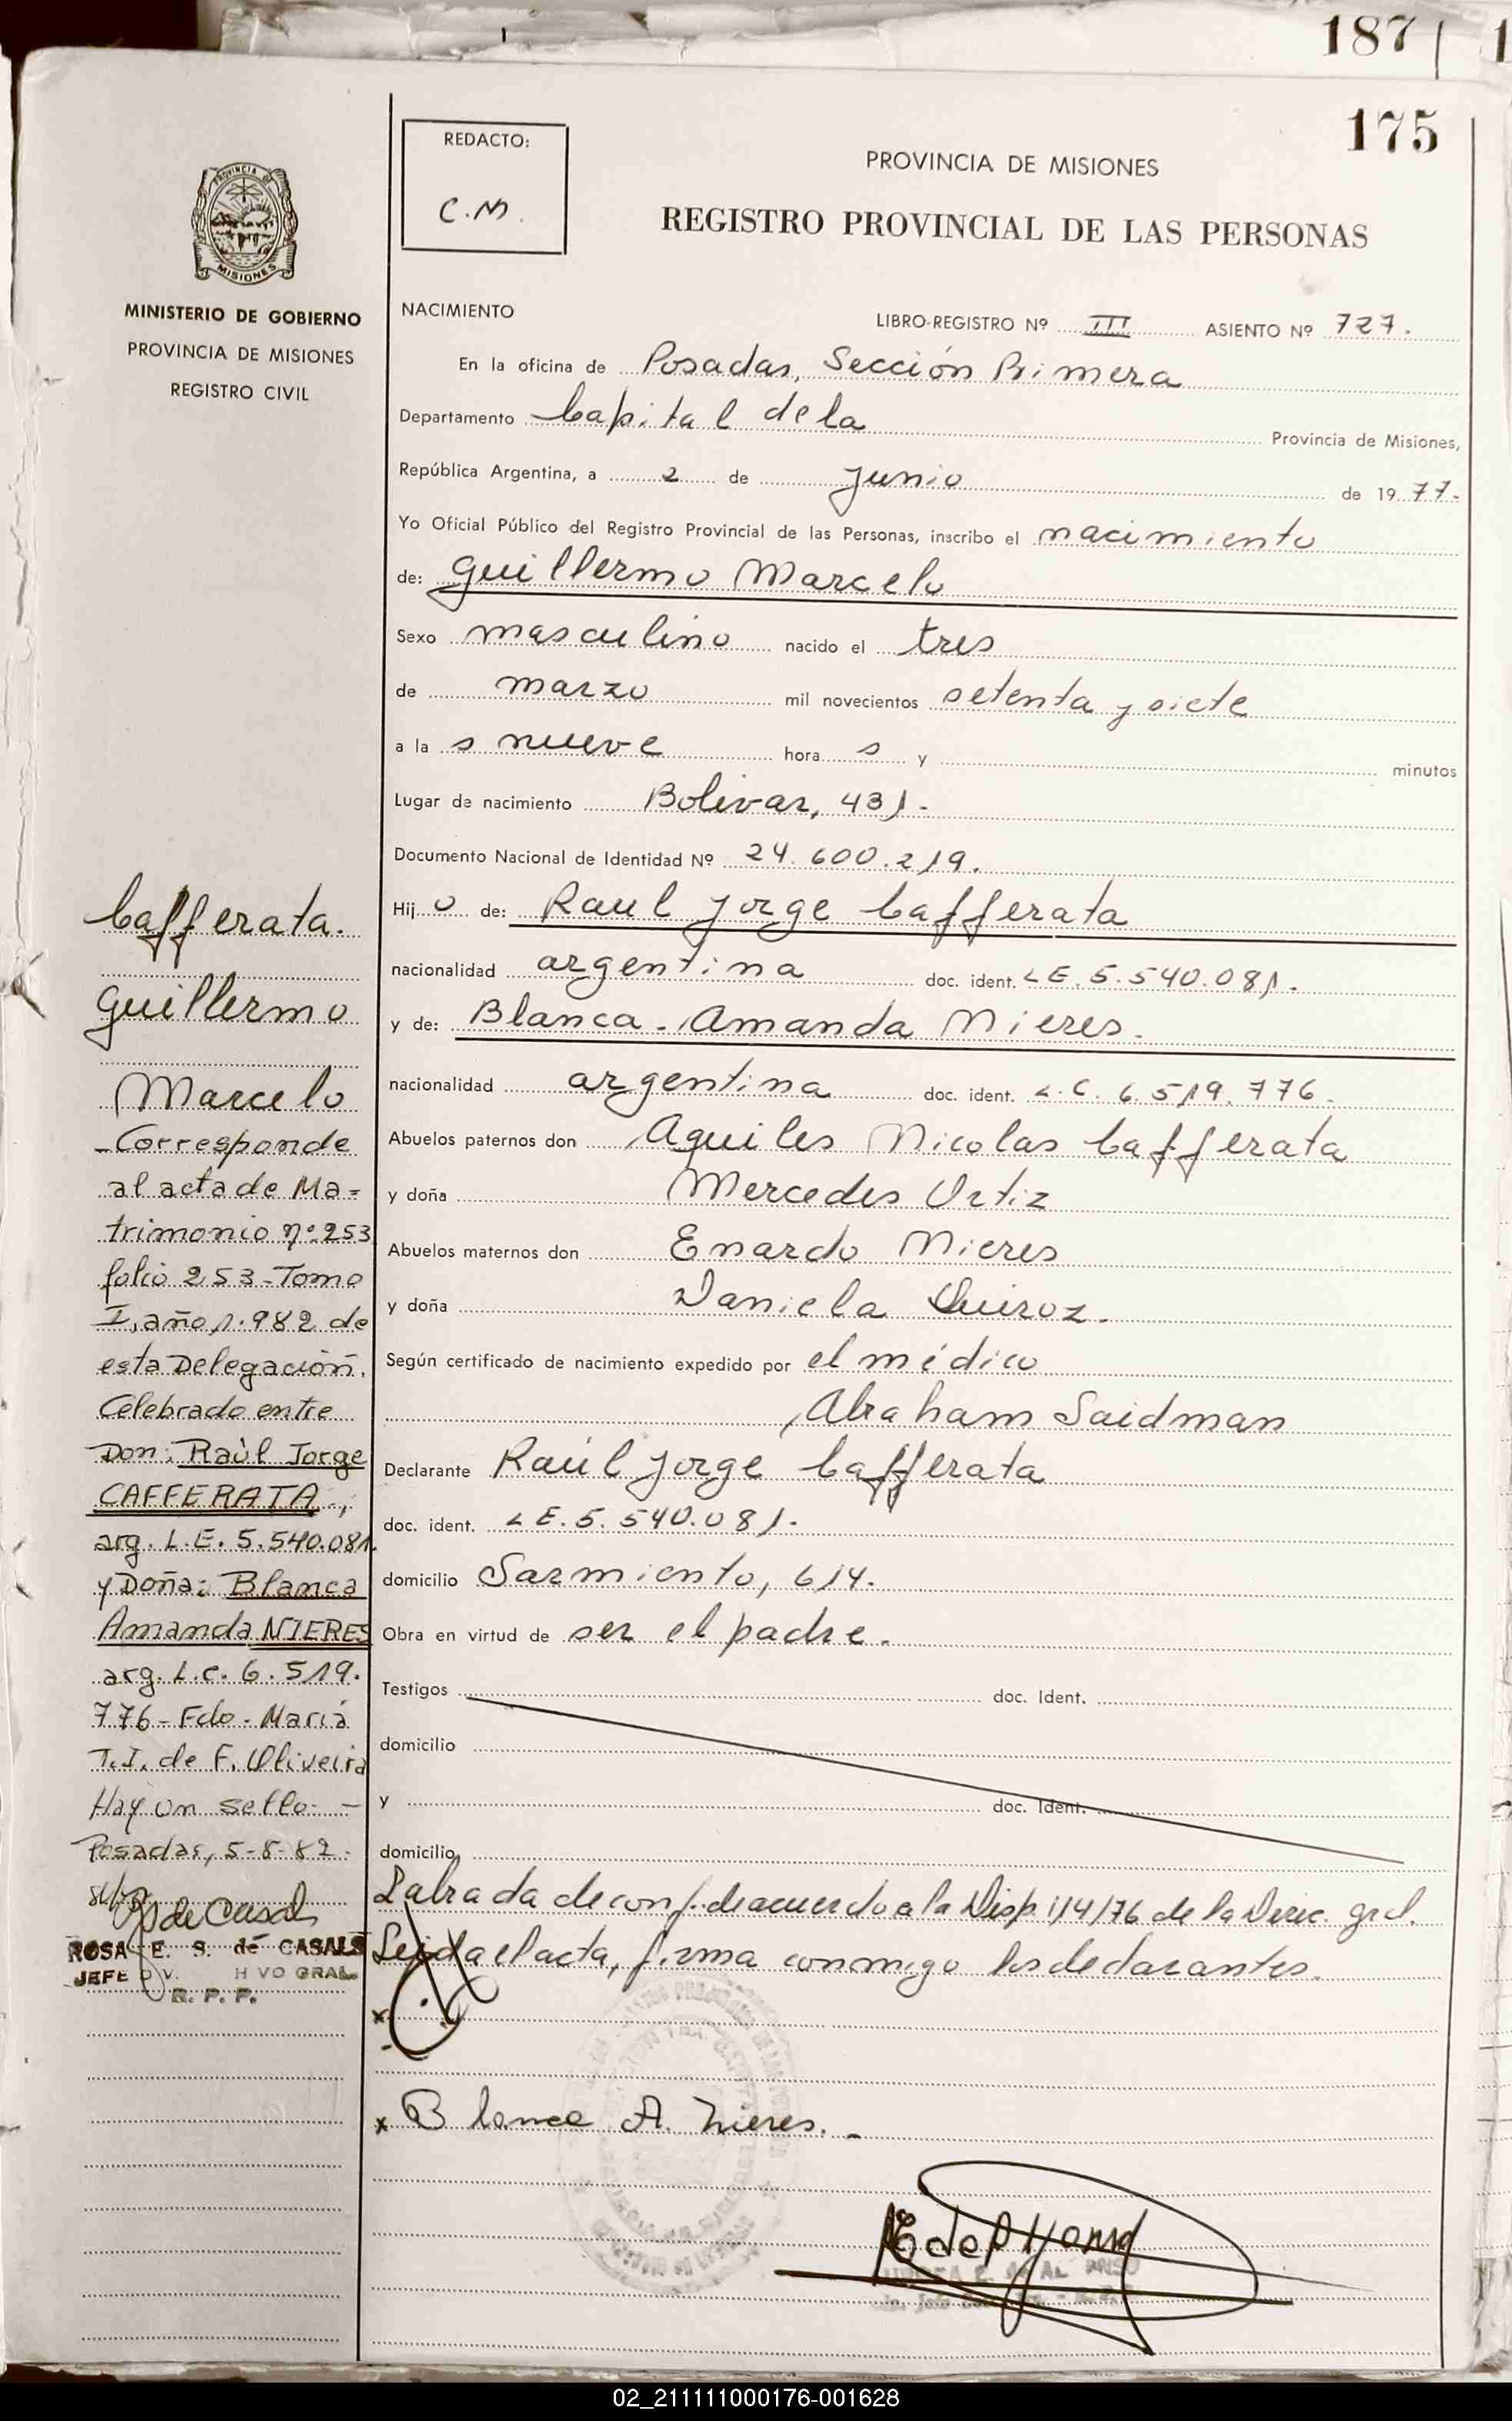 187
175
REDACTO:
C.M.
PROVINCIA DE MISIONES
REGISTRO PROVINCIAL DE LAS PERSONAS
PROVINCIA DE
MISIONES
MINISTERIO DE GOBIERNO
PROVINCIA DE MISIONES
REGISTRO CIVIL
NACIMIENTO
LIBRO-REGISTRO Nº III ASIENTO Nº 727.
En la oficina de Posadas, Sección Primera
Departamento Capital de la Provincia de Misiones,
República Argentina, a 2 de Junio de 1977.
Yo Oficial Público del Registro Provincial de las Personas, inscribo el nacimiento
de: Guillermo Marcelo
Sexo masculino nacido el tres
de marzo mil novecientos setenta y siete
a la s nueve hora s y minutos
Lugar de nacimiento Bolivar, 431.
Documento Nacional de Identidad Nº 24.600.219.
Hij o de: Raul Jorge Cafferata
nacionalidad argentina doc. ident. LE. 5.540.081.
y de: Blanca Amanda Nieres.
nacionalidad argentina doc. ident. L.C. 6.519.776.
Abuelos paternos don Aquiles Nicolas Cafferata
y doña Mercedes Ortiz
Abuelos maternos don Enardo Nieres
y doña Daniela Quiroz.
Según certificado de nacimiento expedido por el médico
Abraham Saidman
Declarante Raúl Jorge Cafferata
doc. ident. LE. 5.540.081.
domicilio Sarmiento, 614.
Obra en virtud de ser el padre.
Testigos doc. Ident.
domicilio
y doc. Ident.
domicilio
Labrada de conf. de acuerdo a la Disp. 114/76 de la Direc. gral.
Leida el acta, firma conmigo los declarantes.
x
x Blanca A. Nieres.
Cafferata.
Guillermo
Marcelo
-Corresponde
al acta de Ma=
trimonio Nº:253
folio 253-Tomo
I, año 1.982 de
esta Delegación.
Celebrado entre
Don: Raùl Jorge
CAFFERATA.,
arg. L.E. 5.540.081.
y Doña: Blanca
Amanda NIERES
arg. L.C. 6.519.
776-Fdo-Maria
T.I. de F. Oliveira
Hay un sello-
Posadas, 5-8-82.
de Casals
ROSA E. S. de CASALS
JEFE DIV. H VO GRAL.
R. P. P.
02_211111000176-001628